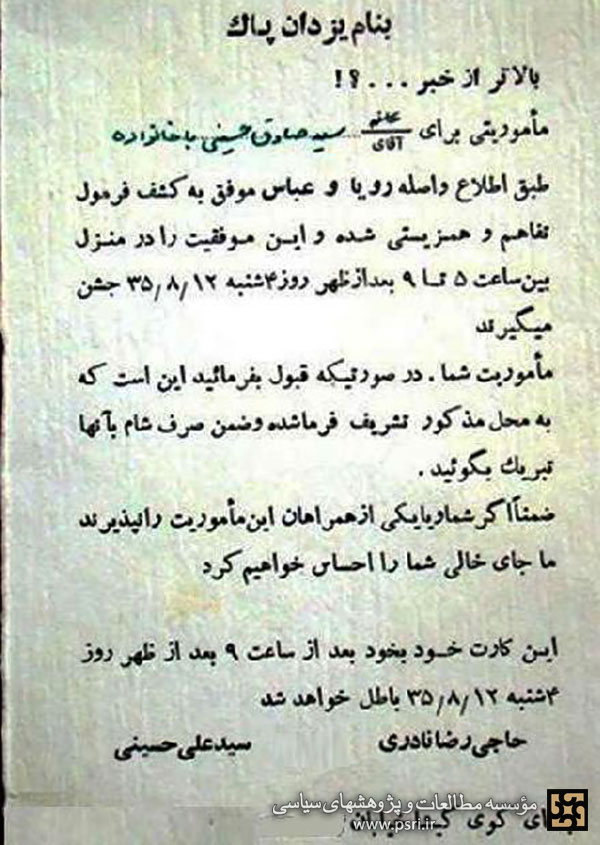 بنام یزدان پاك
بالاتر از خبر ...؟!
مأموریتی برای خانم / آقای سید صادق حسینی باخانواده
طبق اطلاع واصله رویا و عباس موفق به کشف فرمول
تفاهم و همزیستی شده و این موفقیت را در منزل
بین ساعت ۵ تا ۹ بعدازظهر روز ۴شنبه ۳۵/۸/۱۲ جشن
میگیرند
مأموریت شما. در صورتیکه قبول بفرمائید این است که
به محل مذکور تشریف فرماشده وضمن صرف شام بآنها
تبریك بگوئید.
ضمناً اگر شما یا یکی از همراهان این مأموریت را نپذیرند
ما جای خالی شما را احساس خواهیم کرد
این کارت خود بخود بعد از ساعت ۹ بعد از ظهر روز
۴شنبه ۳۵/۸/۱۲ باطل خواهد شد
حاجی رضا نادری سید علی حسینی
مؤسسه مطالعات و پژوهشهای سیاسی
www.psri.ir
کوی خیابان